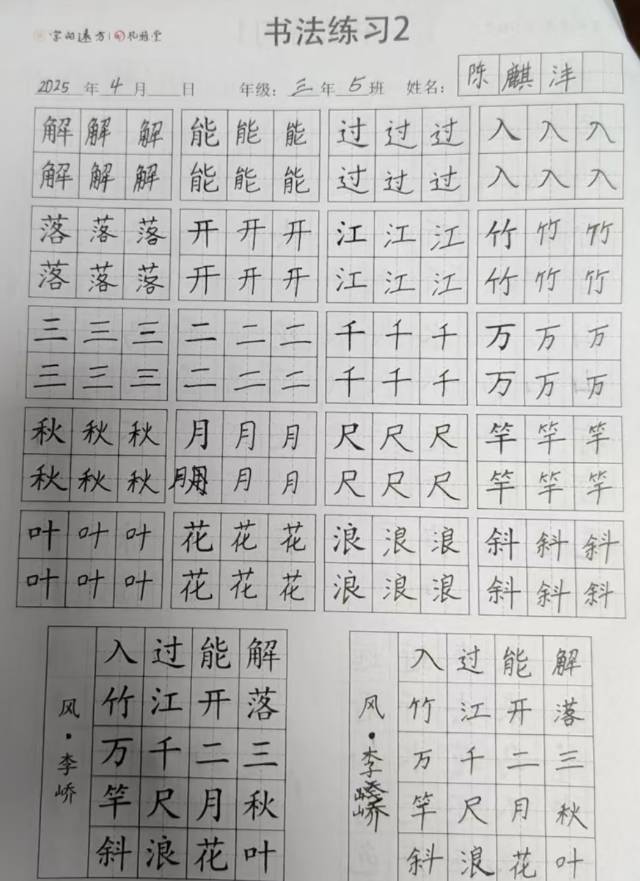 书法练习2
2025年4月 日 年级：三年5班 姓名：陈麒沣
解解解 能能能 过过过 入入入
解解解 能能能 过过过 入入入
落落落 开开开 江江江 竹竹竹
落落落 开开开 江江江 竹竹竹
三三三 二二二 千千千 万万万
三三三 二二二 千千千 万万万
秋秋秋 月月月 尺尺尺 竿竿竿
秋秋秋 月月月 尺尺尺 竿竿竿
叶叶叶 花花花 浪浪浪 斜斜斜
叶叶叶 花花花 浪浪浪 斜斜斜
解落三秋叶
能开二月花
过江千尺浪
入竹万竿斜
风·李峤
解落三秋叶
能开二月花
过江千尺浪
入竹万竿斜
风·李峤